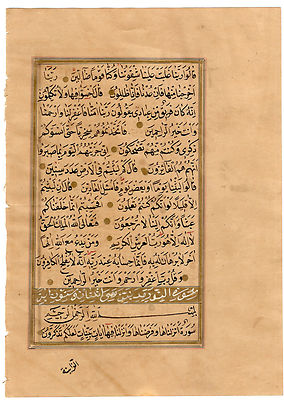 قالوا ربنا غلبت علينا شقوتنا وكنا قوما ضالين ربنا
اخرجنا منها فان عدنا فانا ظالمون قال اخسؤا فيها ولا تكلمون
انه كان فريق من عبادي يقولون ربنا امنا فاغفر لنا وارحمنا
وانت خير الراحمين فاتخذتموهم سخريا حتى انسوكم
ذكري وكنتم منهم تضحكون اني جزيتهم اليوم بما صبروا
انهم هم الفائزون قال كم لبثتم في الارض عدد سنين
قالوا لبثنا يوما او بعض يوم فاسئل العادين قال ان لبثتم
الا قليلا لو انكم كنتم تعلمون افحسبتم انما خلقناكم
عبثا وانكم الينا لا ترجعون فتعالى الله الملك الحق
لا اله الا هو رب العرش الكريم ومن يدع مع الله الها
اخر لا برهان له به فانما حسابه عند ربه انه لا يفلح الكافرون
وقل رب اغفر وارحم وانت خير الراحمين
سورة النور مدنية وهي
بسم الله الرحمن الرحيم
سورة انزلناها وفرضناها وانزلنا فيها ايات بينات لعلكم تذكرون
الزانية